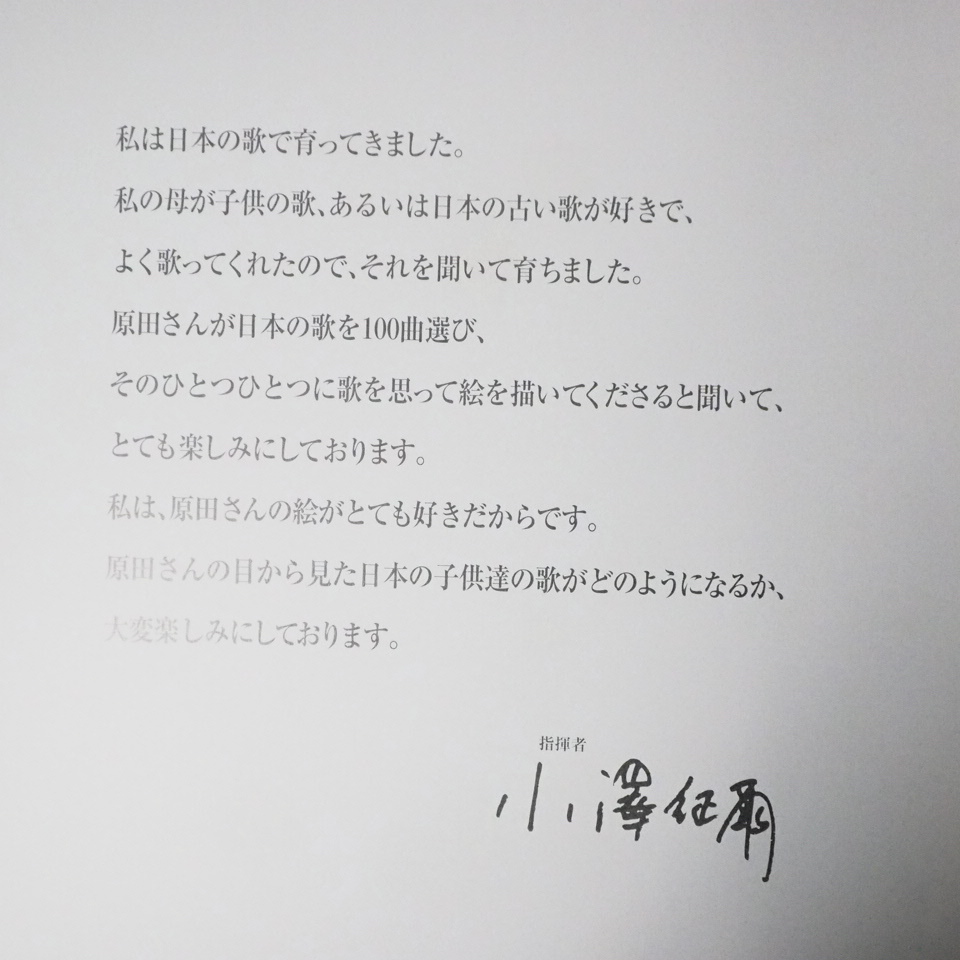 私は日本の歌で育ってきました。
私の母が子供の歌、あるいは日本の古い歌が好きで、
よく歌ってくれたので、それを聞いて育ちました。
原田さんが日本の歌を100曲選び、
そのひとつひとつに歌を思って絵を描いてくださると聞いて、
とても楽しみにしております。
私は、原田さんの絵がとても好きだからです。
原田さんの目から見た日本の子供達の歌がどのようになるか、
大変楽しみにしております。
指揮者
小澤征爾